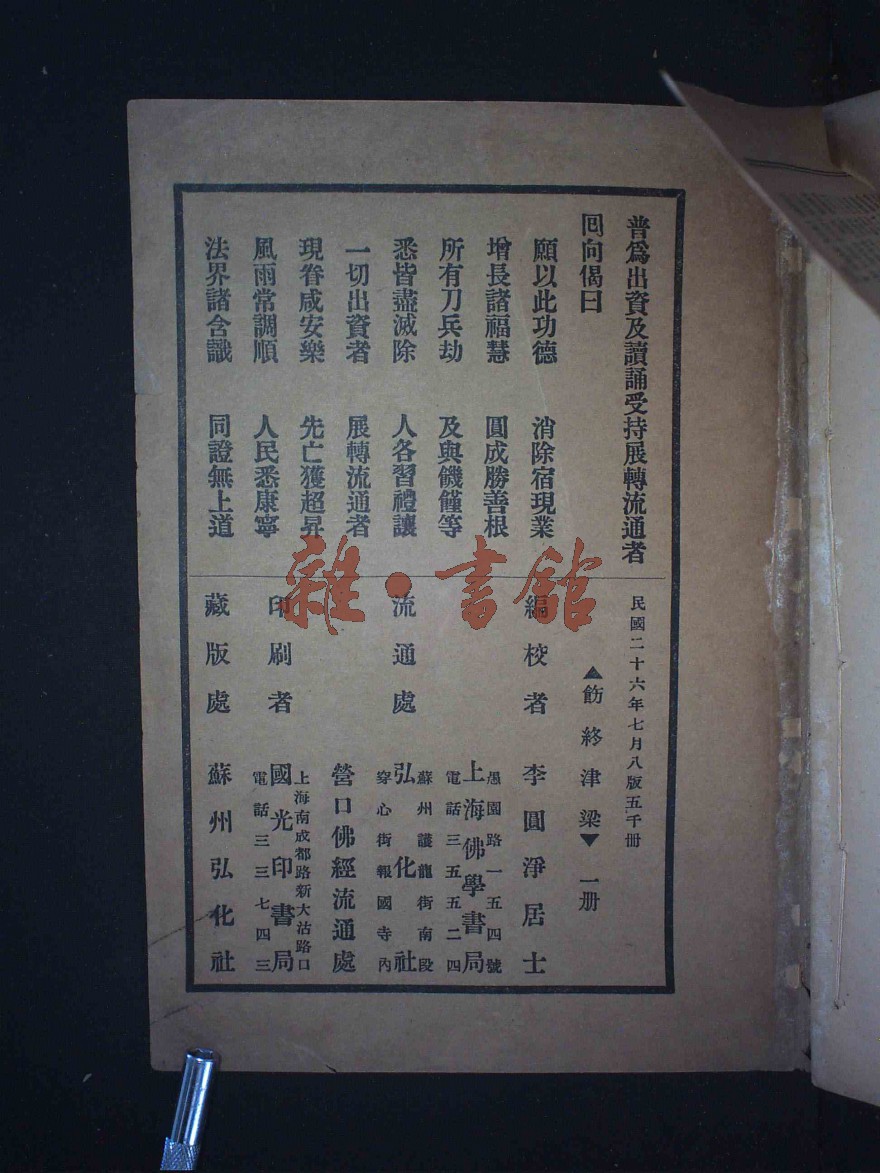 普爲出資及讀誦受持展轉流通者
囘向偈曰
願以此功德 消除宿現業
增長諸福慧 圓成勝善根
所有刀兵劫 及與饑饉等
悉皆盡滅除 人各習禮讓
一切出資者 展轉流通者
現眷咸安樂 先亡獲超昇
風雨常調順 人民悉康寧
法界諸含識 同證無上道
民國二十六年七月八版五千冊
▲飭終津梁▼ 一册
編校者 李圓淨居士
流通處
愚園路一五四號
上海佛學書局
電話三五五二四
蘇州護龍街南段
弘化社
穿心街報國寺內
營口佛經流通處
印刷者
上海南成都路新大沽路口
國光印書局
電話三三七四三
藏版處 蘇州弘化社
雜·書館